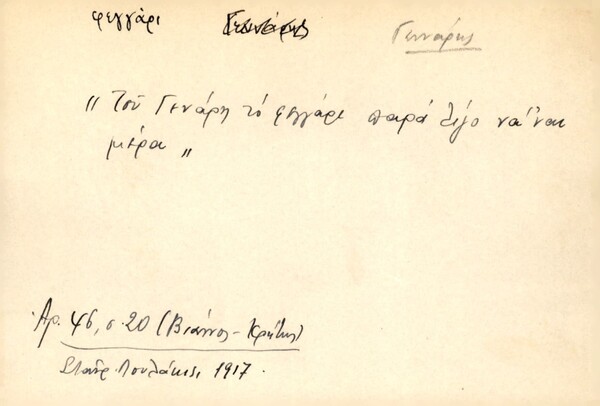 φεγγάρι Γεννάρης Γεννάρης
„ Τοῦ Γενάρη τό φεγγάρι παρά λίγο νά 'ναι
μέρα „
Ἀρ. 46, σ. 20 (Βιάννος - Κρήτης)
Σταῦρ. Λουλάκις, 1917.